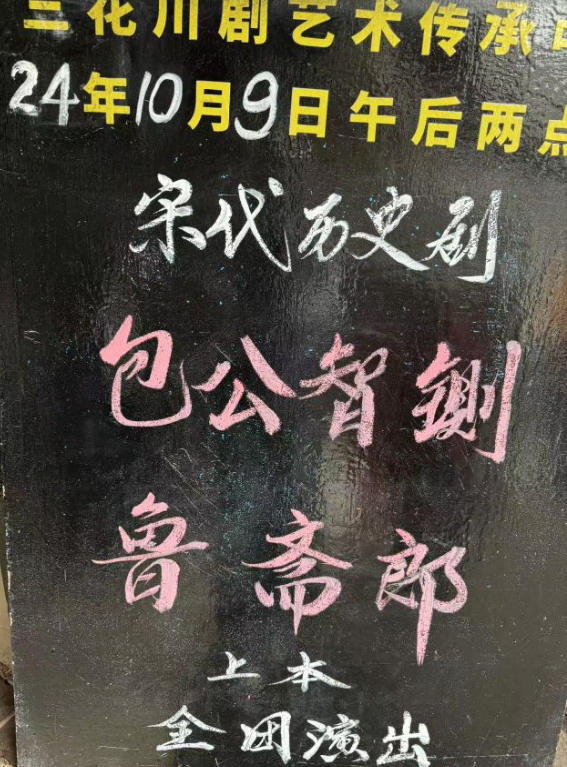 三花川剧艺术传承
24年10月9日午后两点
宋代历史剧
包公智铡
鲁斋郎
上本
全团演出